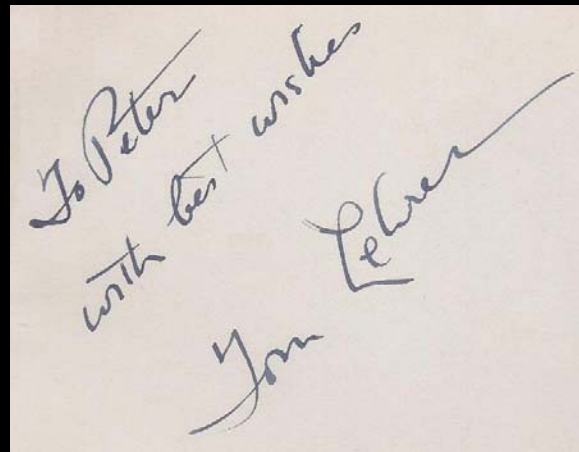 To Peter
with best wishes
Tom Lehrer